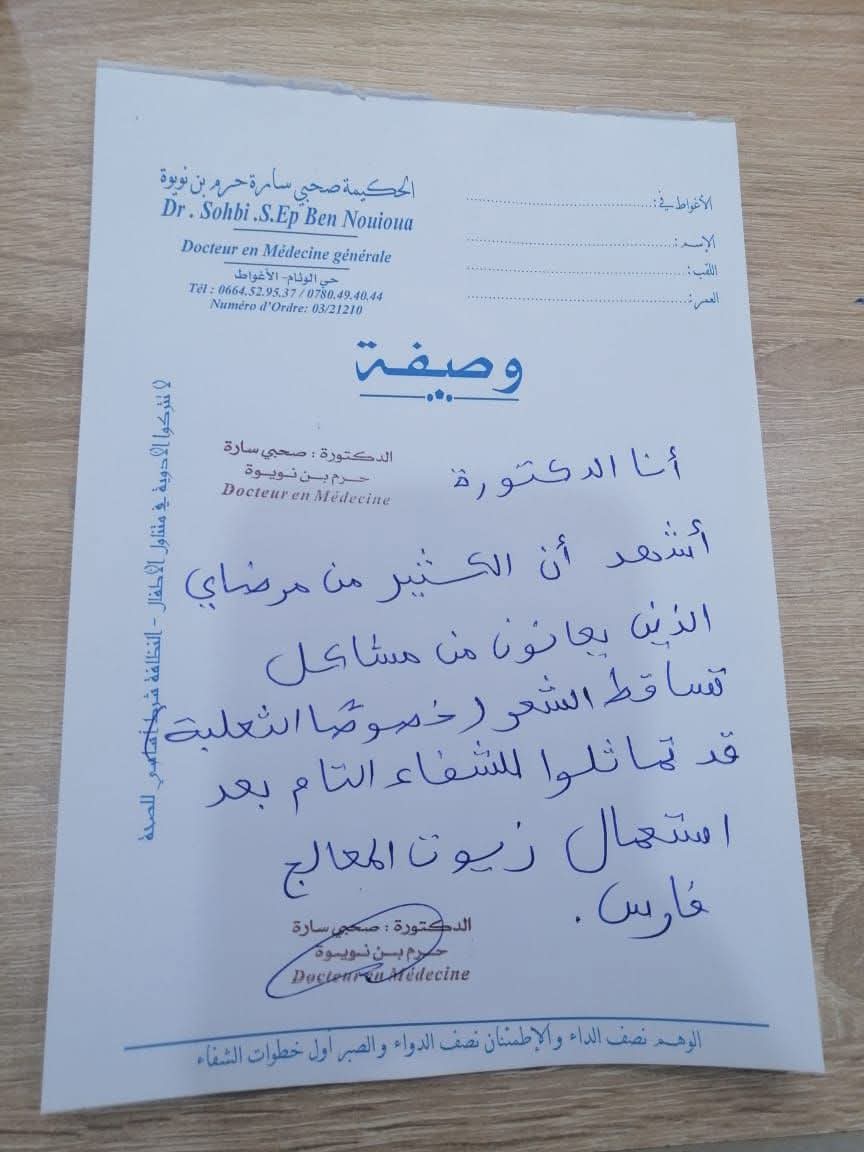 الحكيمة صحبي سارة حرم بن نويوة
Dr . Sohbi .S.Ep Ben Nouioua
Docteur en Médecine générale
حي الوئام- الأغواط
Tél : 0664.52.95.37 / 0780.49.40.44
Numéro d'Ordre: 03/21210
الأغواط في :
الإسم :
اللقب :
العمر :
وصيفة
الدكتورة : صحبي سارة
حرم بن نويوة
Docteur en Médecine
أنا الدكتورة
أشهد أن الكثير من مرضاي
الذين يعانون من مشاكل
تساقط الشعر (خصوصًا الثعلبة
قد تماثلوا للشفاء التام بعد
استعمال زيوت المعالج
فارس .
الدكتورة : صحبي سارة
حرم بن نويوة
Docteur en Médecine
لا تتركوا الأدوية في متناول الأطفال - النظافة شرط أساسي للصحة
الوهم نصف الداء والإطمئنان نصف الدواء والصبر أول خطوات الشفاء